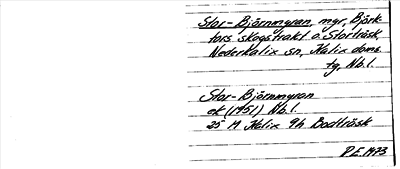 Stor-Björnmyran, myr, Björk-
fors skogstrakt o. Storträsk,
Nederkalix sn, Kalix doms.
tg, Nb.l.
Stor-Björnmyran
ek (1951) Nb.l.
25 M Kalix 9h Bodträsk
P.E. 1973